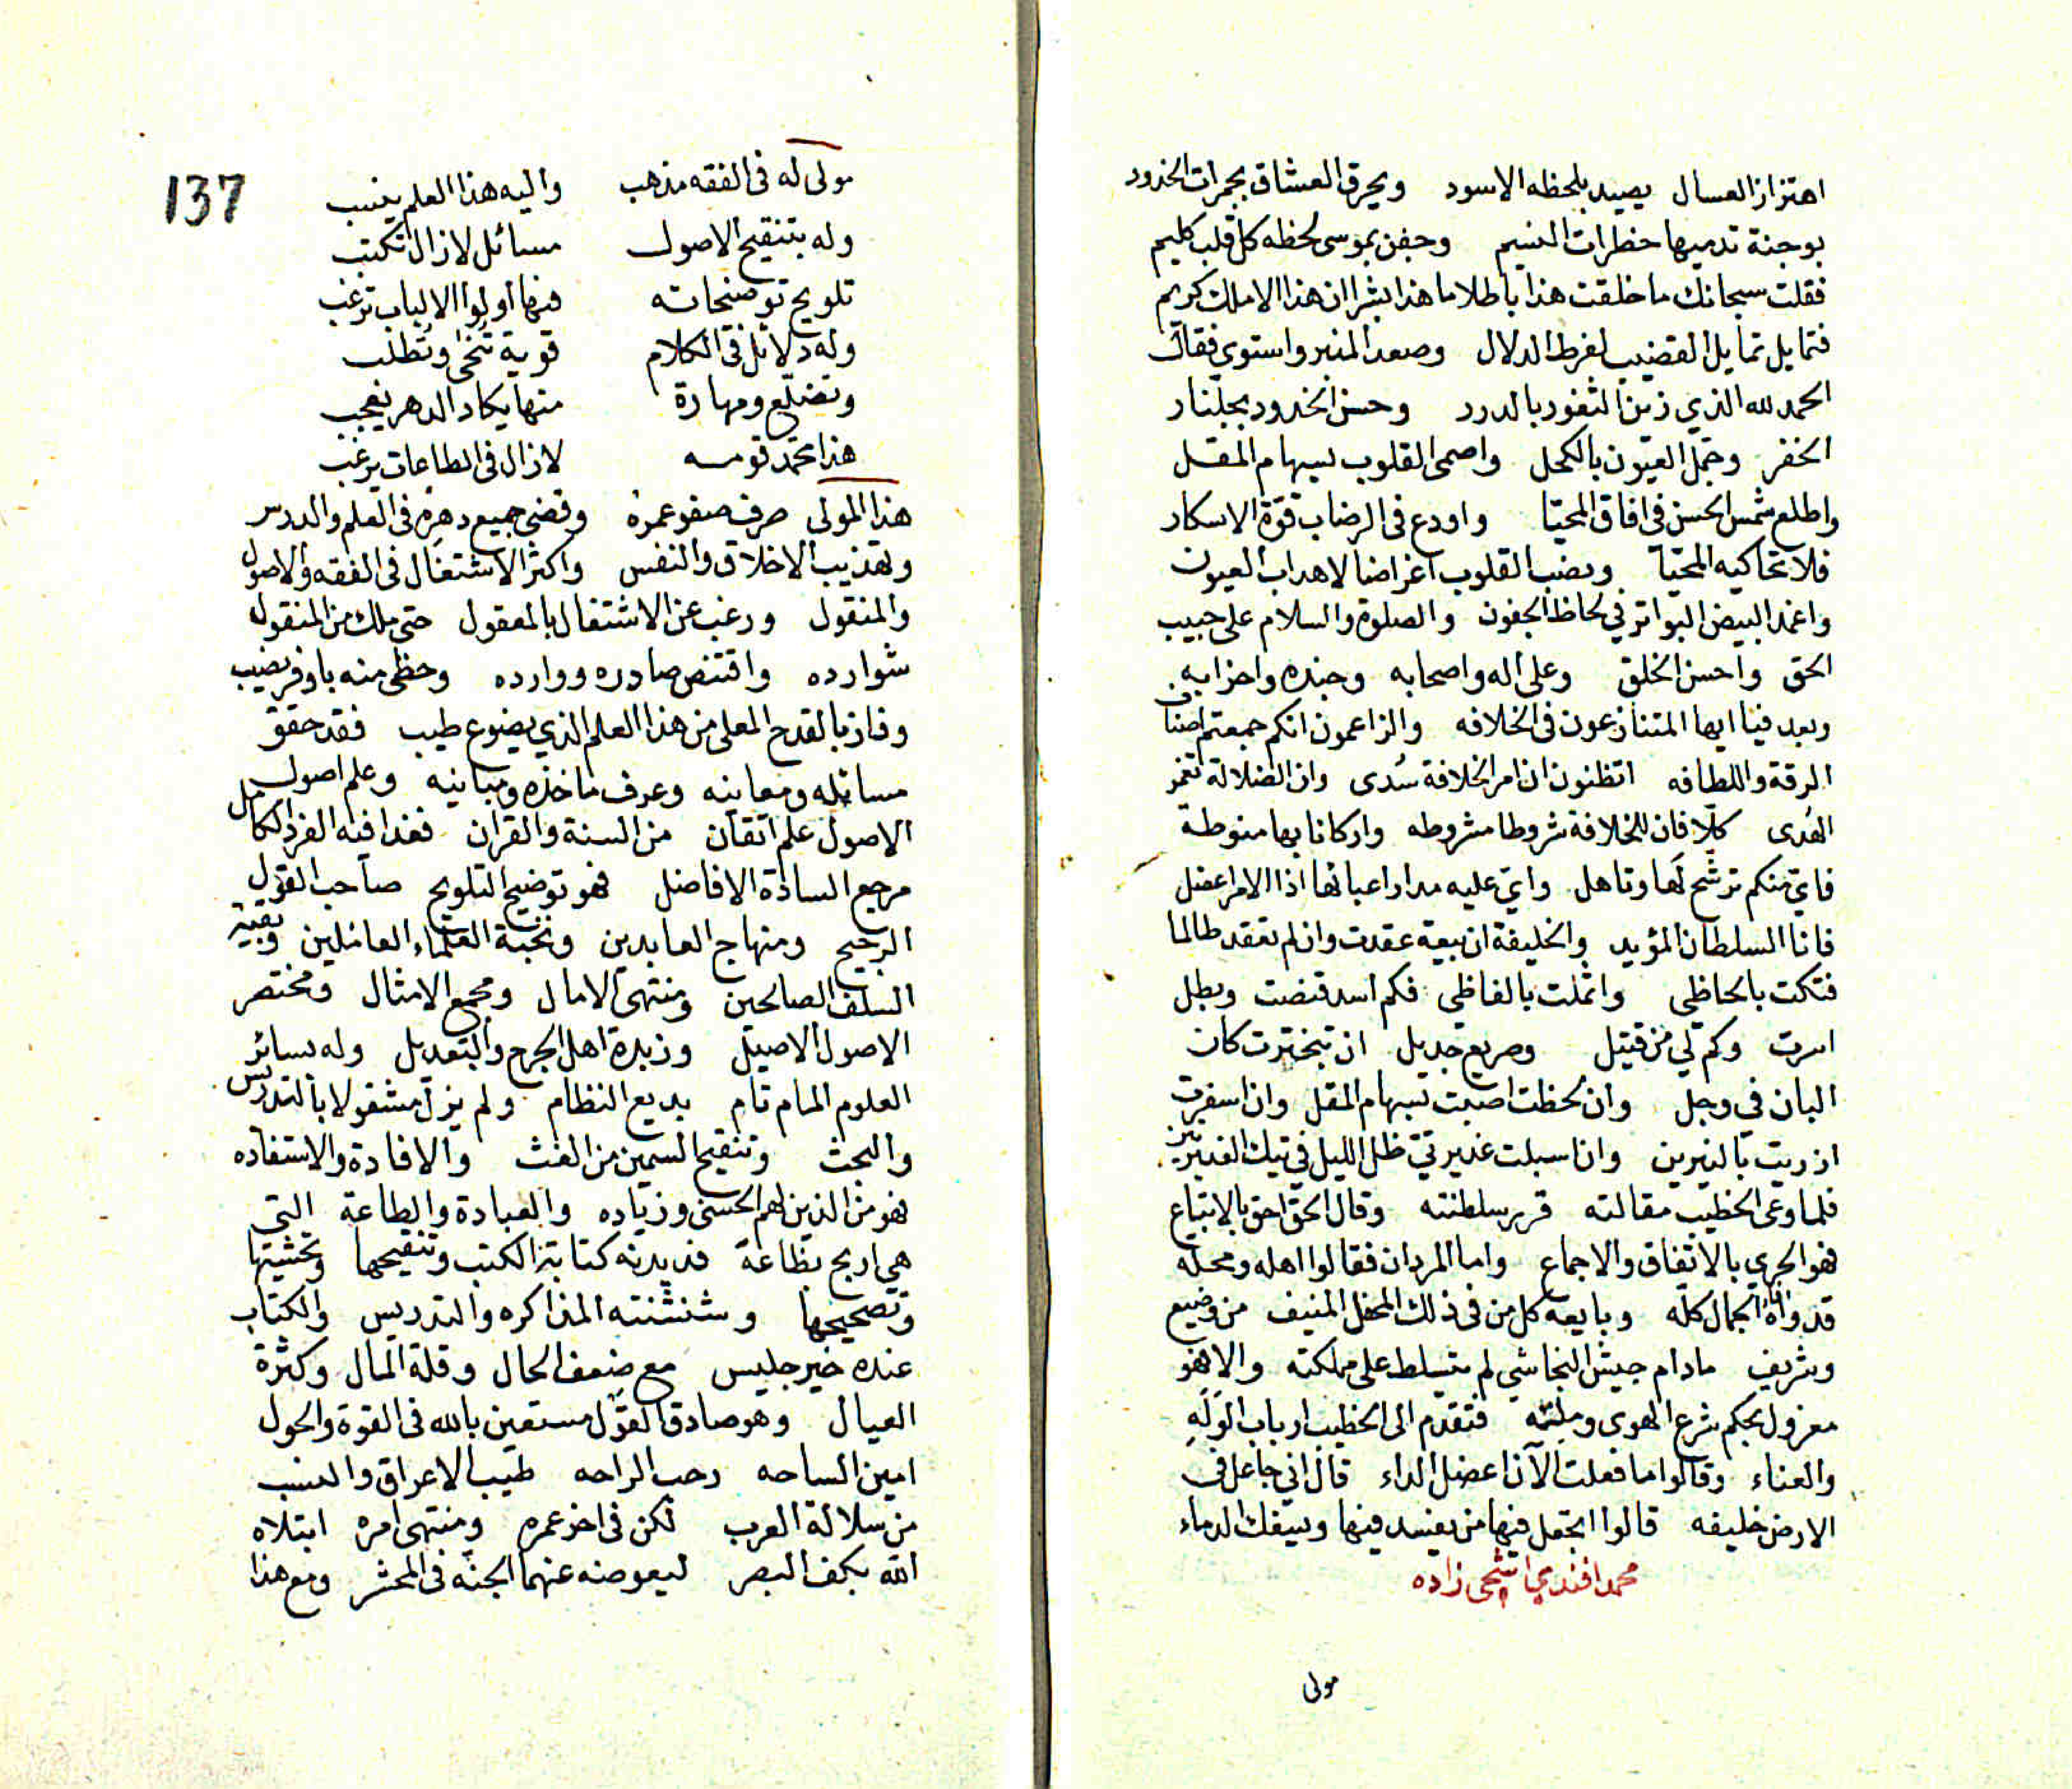 اهتزاز العسال يصيد بلحظه الاسود ويحرق العشاق بجمرات الخدود
بوجنة تدميها خطرات النسيم وجفن بموسى لحظه كل قلب كليم
فقلت سبحانك ما خلقت هذا باطلا ما هذا بشرا ان هذا الا ملك كريم
فتمايل تمايل القضيب لفرط الدلال وصعد المنبر واستوى فقال
الحمد لله الذي زين الثغور بالدرر وحسن الخدود بجلنار
الخفر وجمل العيون بالكحل واصمى القلوب بسهام المقل
واطلع شمس الحسن في افاق المحيا واودع في الرضاب قوة الاسكار
فلا تحاكيه المحيا ونصب القلوب اغراضا لاهداب العيون
واغمد البيض البواتر في لحاظ الجفون والصلوة والسلام على حبيب
الحق واحسن الخلق وعلى اله واصحابه وجنده واحزابه
وبعد فيا ايها المتنازعون في الخلافه والزاعمون انكم جمعتم اصناف
الرقة واللطافه اتظنون ان امر الخلافة سُدى وان الضلالة تغمر
الهُدى كلّا فان للخلافة شروطا مشروطه واركانا بها منوطة
فايّ منكم ترشّح لها وتاهل وايّ عليه مدار اعبائها اذا الامر اعضل
فانا السلطان المؤيد والخليفة ان بيعة عقدت وان لم تعقد طالما
فتكت بالحاظي واثملت بالفاظي فكم اسد قنصت وبطل
اسرت وكم لي من قتيل وصريع جديل ان تبخترت كان
البان في وجل وان لحظت اصبت بسهام المقل وان اسفرت
ازريت بالنيرين وان اسبلت غديرتيّ ظل الليل في تيك الغديرتين
فلما وعى الخطيب مقالته قرر سلطنته وقال الحق احق بالاتباع
فهو الحري بالاتفاق والاجماع واما المردان فقالوا اهله ومحله
قد واتاه الجمال كله وبايعه كل من في ذلك المحفل المنيف من وضيع
وشريف مادام جيش النجاشي لم يتسلط على مملكته والا فهو
معزول بحكم شرع الهوى وملته فتقدم الى الخطيب ارباب الوله
والعناء وقالوا ما فعلت الآن اعضل الداء قال اني جاعل في
الارض خليفه قالوا اتجعل فيها من يفسد فيها ويسفك الدماء
محمد افندي اشجى زاده
مولى
137
مولى له في الفقه مذهب واليه هذا العلم ينسب
وله بتنقيح الاصول مسائل لازال تكتب
تلويح توضيحاته فيها اولوا الالباب ترغب
وله دلائل في الكلام قوية تُنحى وتُطلب
وتضلّع ومهارة منها يكاد الدهر يعجب
هذا محمد قومه لازال في الطاعات يرغب
هذا المولى صرف صفو عمره وقضى جميع دهره في العلم والدرس
وتهذيب الاخلاق والنفس واكثر الاشتغال في الفقه والاصول
والمنقول ورغب عن الاشتغال بالمعقول حتى ملك من المنقول
شوارده واقتنص صادره ووارده وحظي منه باوفر نصيب
وفاز بالقدح المعلى من هذا العلم الذي يضوع طيب فقد حقق
مسائله ومعانيه وعرف ماخذه ومبانيه وعلم اصول
الاصول علم اتقان من السنة والقران فغدا فيه الفرد الكامل
مرجع السادة الافاضل فهو توضيح التلويح صاحب القول
الرجيح ومنهاج العابدين ونخبة العلماء العاملين وبقية
السلف الصالحين ومنتهى الامال ومجمع الامثال ومختصر
الاصول الاصيل وزبدة اهل الجرح والتعديل وله بسائر
العلوم المام تام بديع النظام ولم يزل مشغولا بالتدريس
والبحث وتنقيح السمين من الغث والافادة والاستفاده
فهو من الذين لهم الحسنى وزياده والعبادة والطاعة التي
هي اربح بضاعة فديدنه كتابة الكتب وتنقيحها وتحشيتها
وتصحيحها وشنشنته المذاكره والتدريس والكتاب
عنده خير جليس مع ضعف الحال وقلة المال وكثرة
العيال وهو صادق القول مستعين بالله في القوة والحول
امين الساحه رحب الراحه طيب الاعراق والنسب
من سلالة العرب لكن في اخر عمره ومنتهى امره ابتلاه
الله بكف البصر ليعوضه عنهما الجنة في المحشر ومع هذا